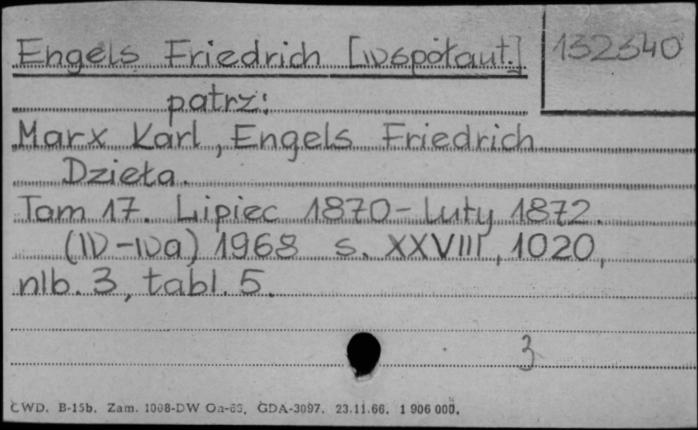 Engels Friedrich [współaut.] 132340
patrz:
Marx Karl, Engels Friedrich
Dzieła.
Tom 17. Lipiec 1870-luty 1872.
(W-wa) 1968 s. XXVIII, 1020,
nlb. 3, tabl. 5.
3
CWD. B-15b. Zam. 1008-DW GDA-3097. 23.11.66. 1 906 000.